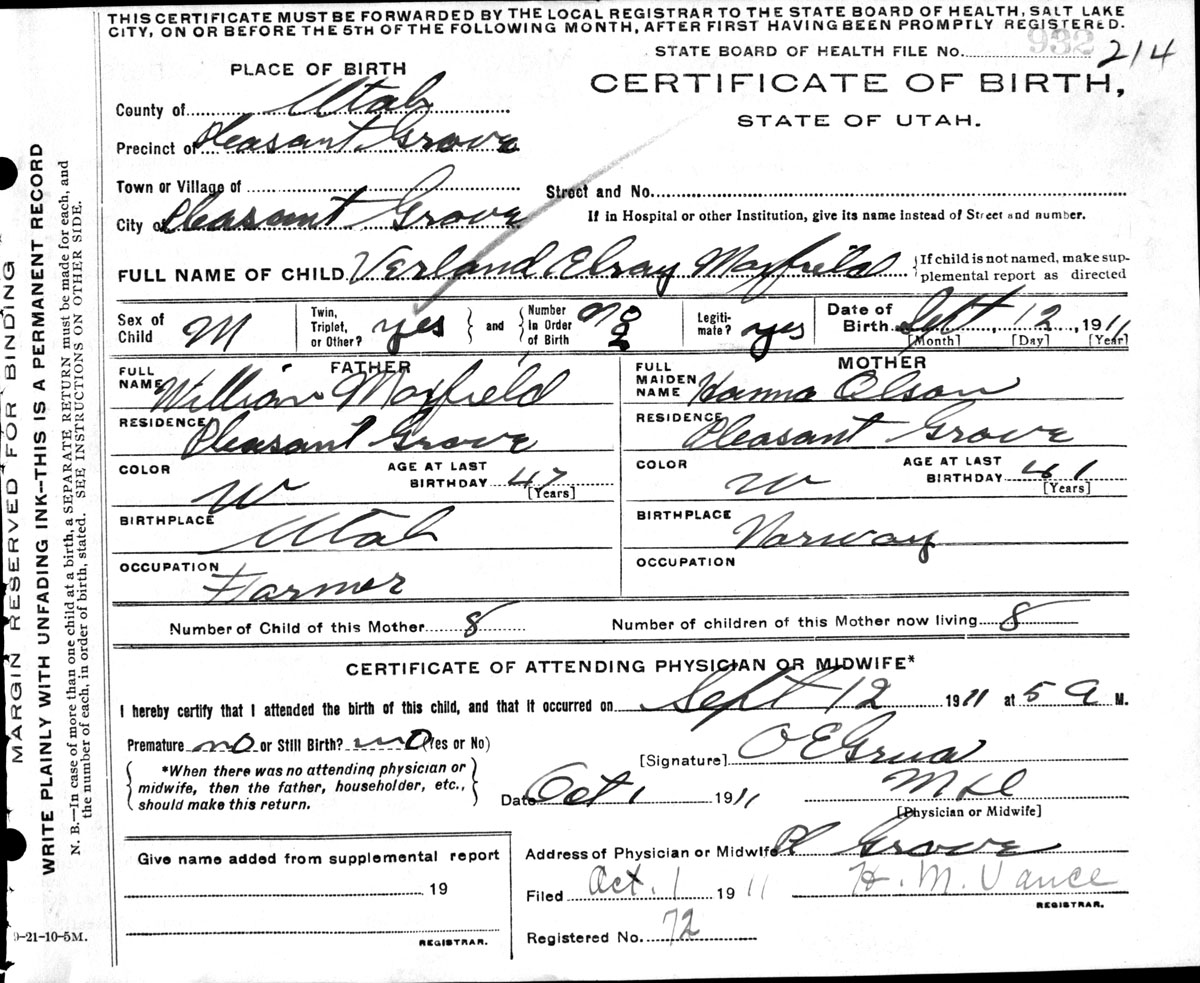 THIS CERTIFICATE MUST BE FORWARDED BY THE LOCAL REGISTRAR TO THE STATE BOARD OF HEALTH, SALT LAKE
CITY, ON OR BEFORE THE 5TH OF THE FOLLOWING MONTH, AFTER FIRST HAVING BEEN PROMPTLY REGISTERED.
STATE BOARD OF HEALTH FILE NO. 932 214
PLACE OF BIRTH
CERTIFICATE OF BIRTH,
STATE OF UTAH.
County of Utah
Precinct of Pleasant Grove
Town or Village of
Street and No.
City of Pleasant Grove
If in Hospital or other Institution, give its name instead of Street and number.
FULL NAME OF CHILD Verland Elray Mayfield
{If child is not named, make sup-
plemental report as directed
Sex of Child M
Twin, Triplet, or Other? yes } and { Number in Order of Birth No 2
Legiti-mate? yes
Date of Birth Sept 12, 1911
[Month] [Day] [Year]
FATHER
FULL NAME William Mayfield
RESIDENCE Pleasant Grove
COLOR W
AGE AT LAST BIRTHDAY 47
[Years]
BIRTHPLACE Utah
OCCUPATION Farmer
MOTHER
FULL MAIDEN NAME Hanna Olson
RESIDENCE Pleasant Grove
COLOR W
AGE AT LAST BIRTHDAY 41
[Years]
BIRTHPLACE Norway
OCCUPATION
Number of Child of this Mother 8
Number of children of this Mother now living 8
CERTIFICATE OF ATTENDING PHYSICIAN OR MIDWIFE*
I hereby certify that I attended the birth of this child, and that it occurred on Sept 12 1911 at 5 A M.
Premature no or Still Birth? no (Yes or No)
[Signature] O E Grua
{ *When there was no attending physician or
midwife, then the father, householder, etc.,
should make this return. }
Date Oct 1 1911
M D
[Physician or Midwife]
Give name added from supplemental report
19
REGISTRAR.
Address of Physician or Midwife Pl Grove
Filed Oct. 1 1911
H. M. Vance
REGISTRAR.
Registered No. 72
9-21-10-5M.
MARGIN RESERVED FOR BINDING
WRITE PLAINLY WITH UNFADING INK—THIS IS A PERMANENT RECORD
N. B.—In case of more than one child at a birth, a SEPARATE RETURN must be made for each, and
the number of each, in order of birth, stated. SEE INSTRUCTIONS ON OTHER SIDE.